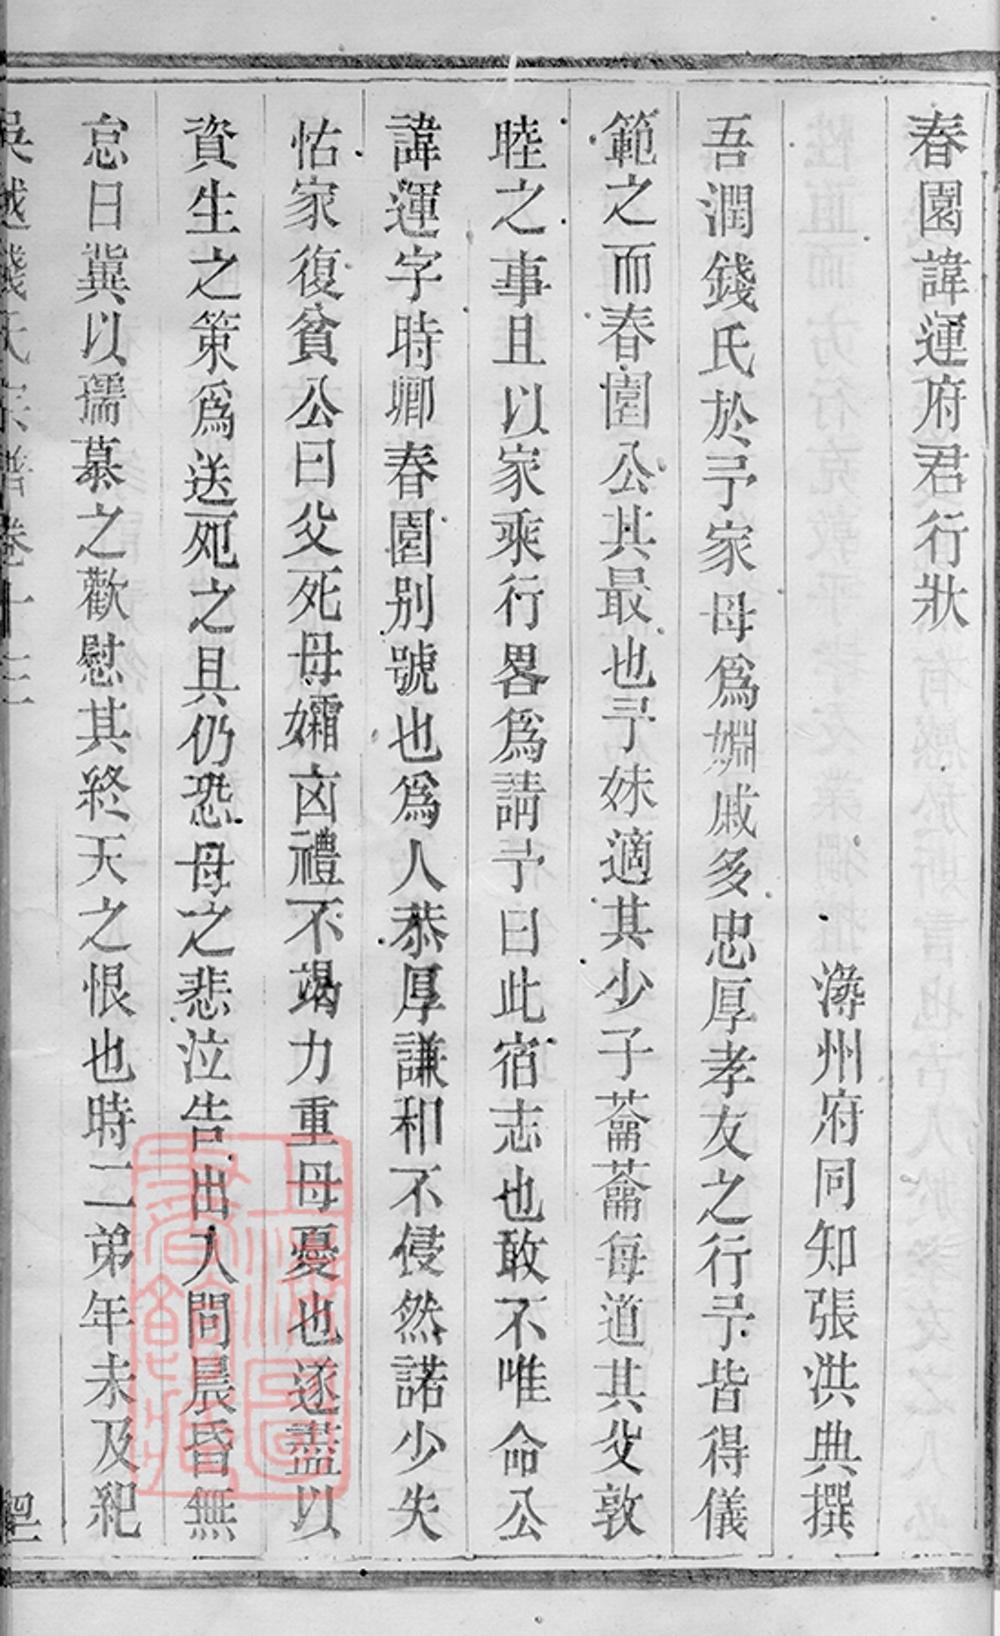 春園諱運府君行狀
潯州府同知張洪典撰
吾潤錢氏於予家母爲婣戚多忠厚孝友之行予皆得儀
範之而春園公其最也予妹適其少子菕菕每道其父敦
睦之事且以家乘行畧爲請予曰此宿志也敢不唯命公
諱運字時卿春園別號也爲人恭厚謙和不侵然諾少失
怙家復貧公曰父死母孀凶禮不竭力重母憂也遂盡以
資生之策爲送死之具仍恐母之悲泣告出入問晨昏無
怠日冀以孺慕之歡慰其終天之恨也時二弟年未及紀
吳越錢氏宗譜卷十三
上海圖書館藏